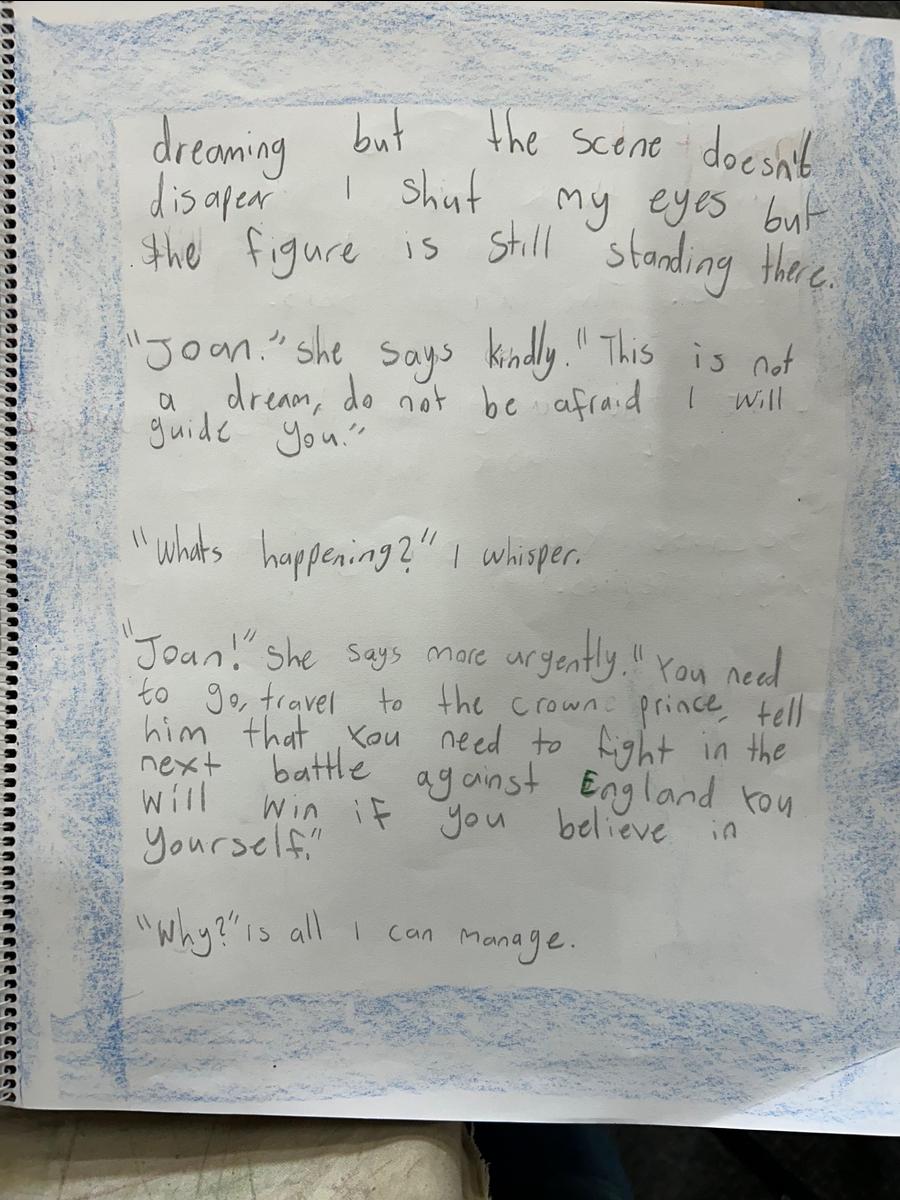 dreaming but the scene doesn't
disapear I shut my eyes but
the figure is still standing there.
"Joan." she says kindly. "This is not
a dream, do not be afraid I will
guide you."
"Whats happening?" I whisper.
"Joan!" she says more urgently. "You need
to go, travel to the crown prince, tell
him that you need to fight in the
next battle against England you
will win if you believe in
yourself."
"Why?" is all I can manage.